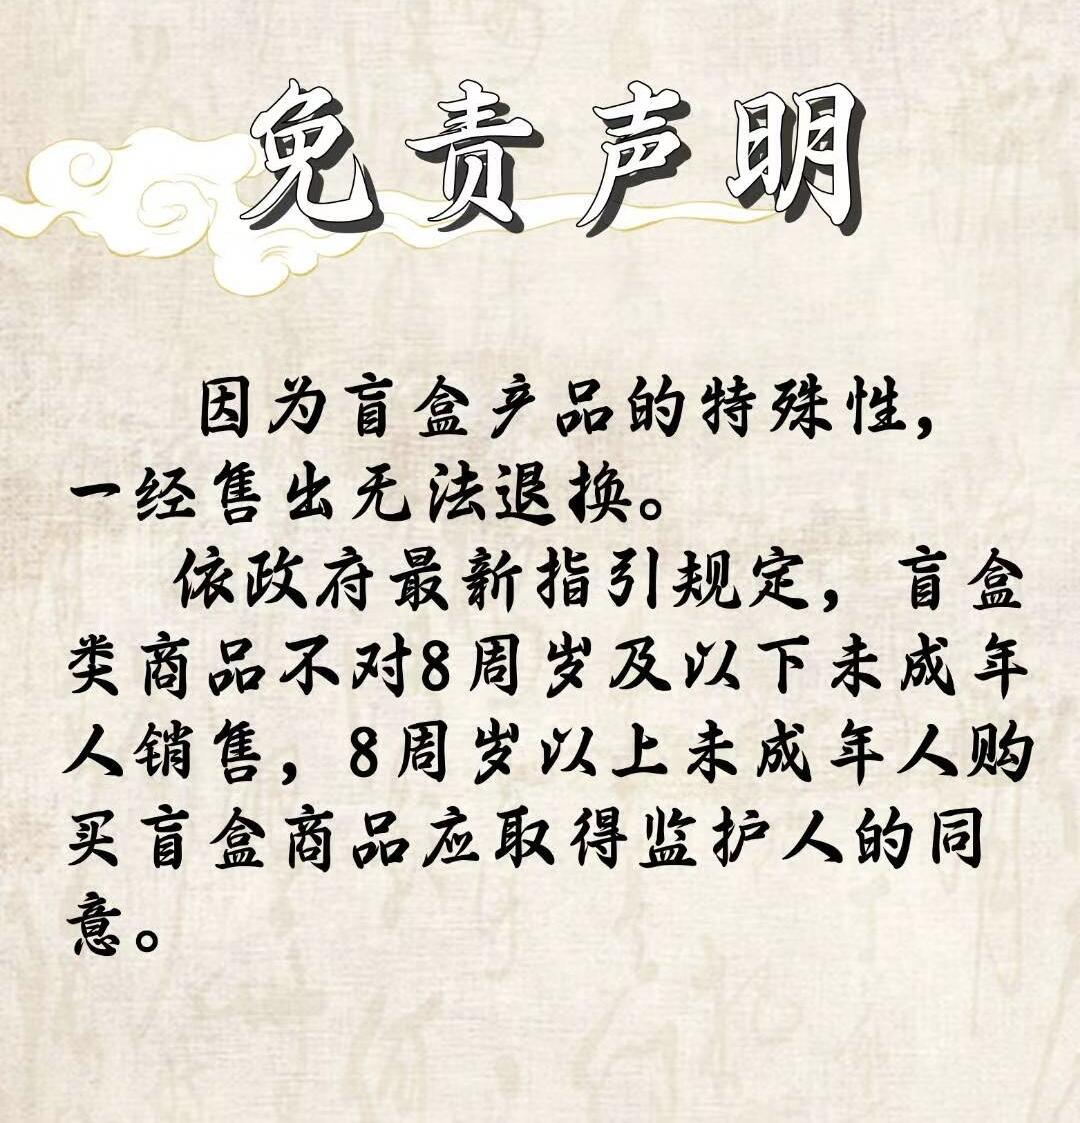 免责声明
因为盲盒产品的特殊性，
一经售出无法退换。
依政府最新指引规定，盲盒
类商品不对8周岁及以下未成年
人销售，8周岁以上未成年人购
买盲盒商品应取得监护人的同
意。